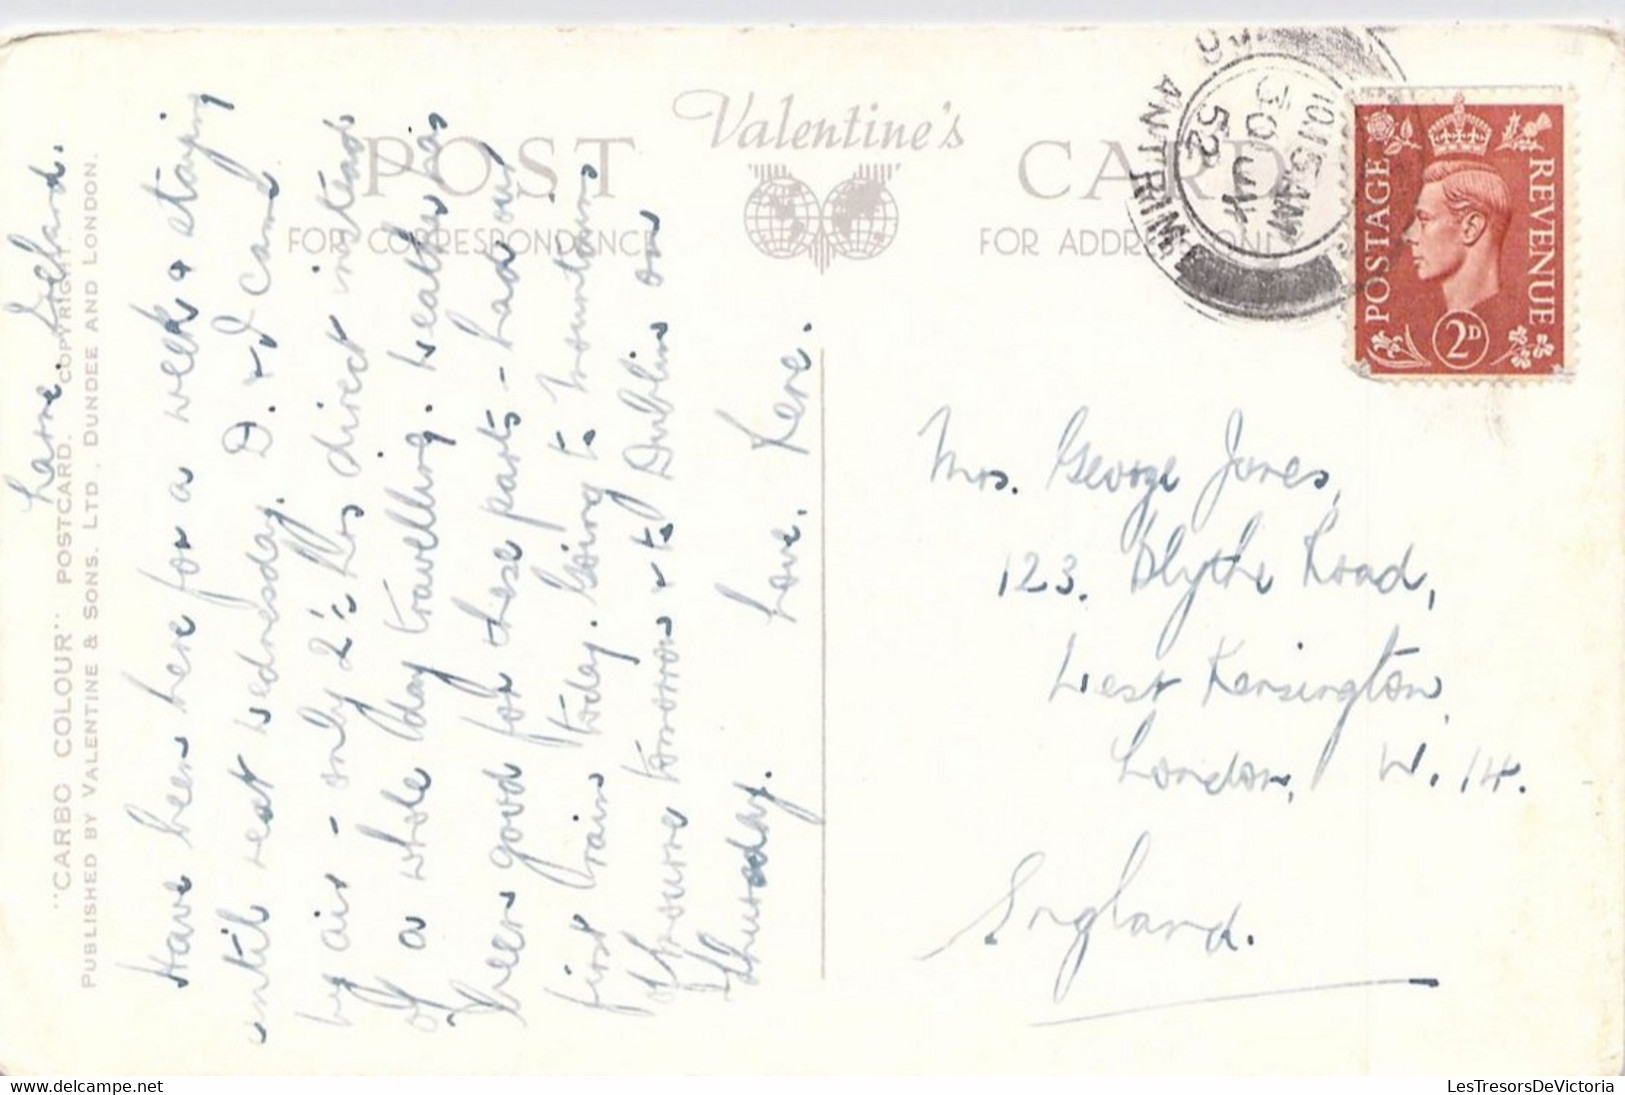 Larne. Ireland.
Have been here for a week & staying
until next Wednesday. D. & I came
by air - only 2½ hrs direct instead
of a whole day travelling. Weather has
been good for these parts - had our
first rain today. Going to mountains
of Mourne tomorrow & to Dublin on
Thursday.
Love, Rene.
"CARBO COLOUR" POSTCARD. COPYRIGHT.
PUBLISHED BY VALENTINE & SONS. LTD., DUNDEE AND LONDON.
Valentine's
POST CARD
FOR CORRESPONDENCE
FOR ADDRESS ONLY
10.15 AM
30 JY
52
ANTRIM
POSTAGE
REVENUE
2D
Mrs. George Jones,
123. Blythe Road,
West Kensington,
London, W. 14.
England.
© delcampe.net
LesTresorsDeVictoria